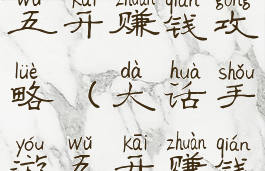 wǔ kāi zhuàn qián gōng
五开赚钱攻
lüè dà huà shǒu
略（大话手
yóu wǔ kāi zhuàn qián
游五开赚钱